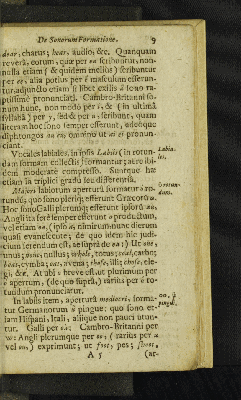 De Sonorum Formatione. 9
dear, charus; hear, audio, &c. Quanquam
reverâ, eorum, quæ per ea scribuntur, non-
nulla etiam (& quidem melius) scribuntur
per ee, alia potius per é masculum efferun-
tur, adjuncto etiam si libet exilis á sono ra-
ptissime pronunciati. Cambro-Britanni so-
num hunc, non modo per i, & (in ultima
syllaba) per y, sed & per u, scribunt, quam
literam hoc sono semper efferunt, adeoque
diphtongos au eu, omnino ut ai ei pronun-
ciant.
Vocales labiales, in ipsis Labiis (in rotun-
dam formam collectis) formantur; at re ibi-
dem moderate compressis. Suntque hæ
etiam in triplici gradu seu differentia.
Labia-
les.
Majori labiorum apertura formatur ô ro-
tundum; quo sono plerique efferunt Græcorum ω.
Hoc sono Galli plerumque efferunt ipsorum au.
Angli ita ferè semper efferunt o productum,
vel etiam oa, (ipso a, nimirum nunc dierum
quasi evanescente; de quo idem hic judi-
cium ferendum est, ac supra de ea:) Ut one,
unus; none, nullus; whole, totus; coal, carbo;
boat, cymba; oat, avena; those, illi; chose, ele-
gi, &c. At ubi o breve est, ut plurimum per
ò apertum, (de quo supra,) rarius per ó ro-
tundum pronunciatur.
In labiis item, apertura mediocri, forma-
tur Germanorum û pingue: quo sono et-
iam Hispani, Itali, aliique non pauci utun-
tur. Galli per ou: Cambro-Britanni per
w: Angli plerumque per oo, (rarius per u
vel ou,) exprimunt; ut foot, pes; shoot,
A 5